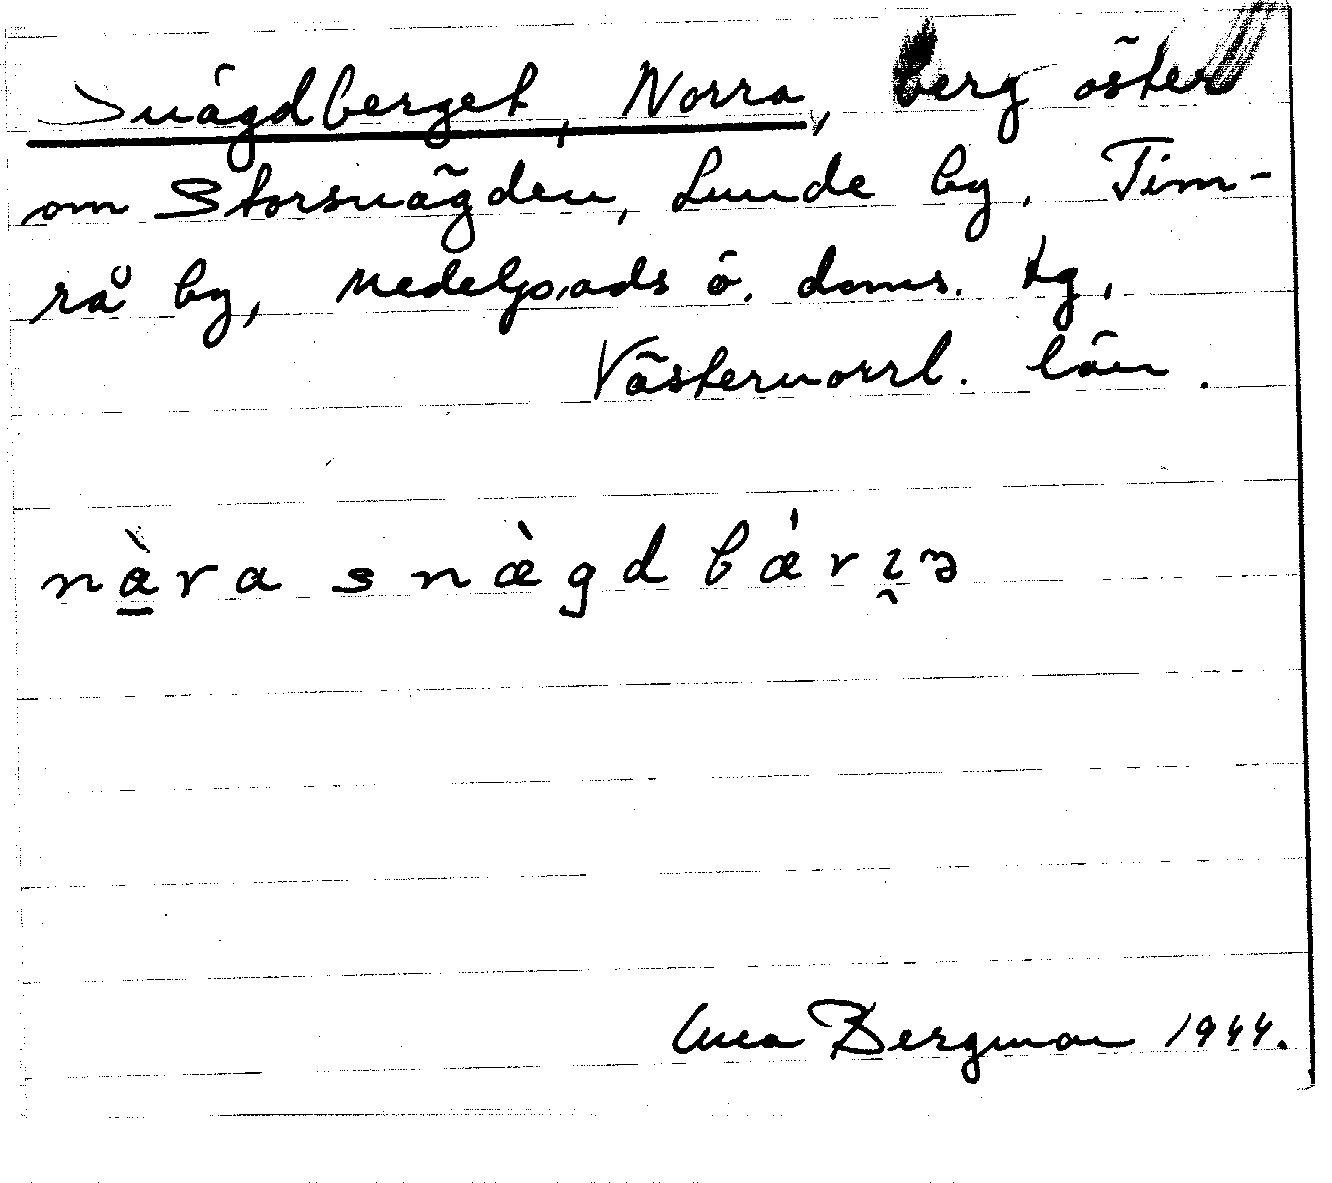 Snägdberget, Norra, berg öster
om Storsnägden, Lunde by, Tim-
rå by, Medelpads ö. doms. tg,
Västernorrl. län.
nàra snæ̀gdbǽrɪ̯ə
Bergman 1944.